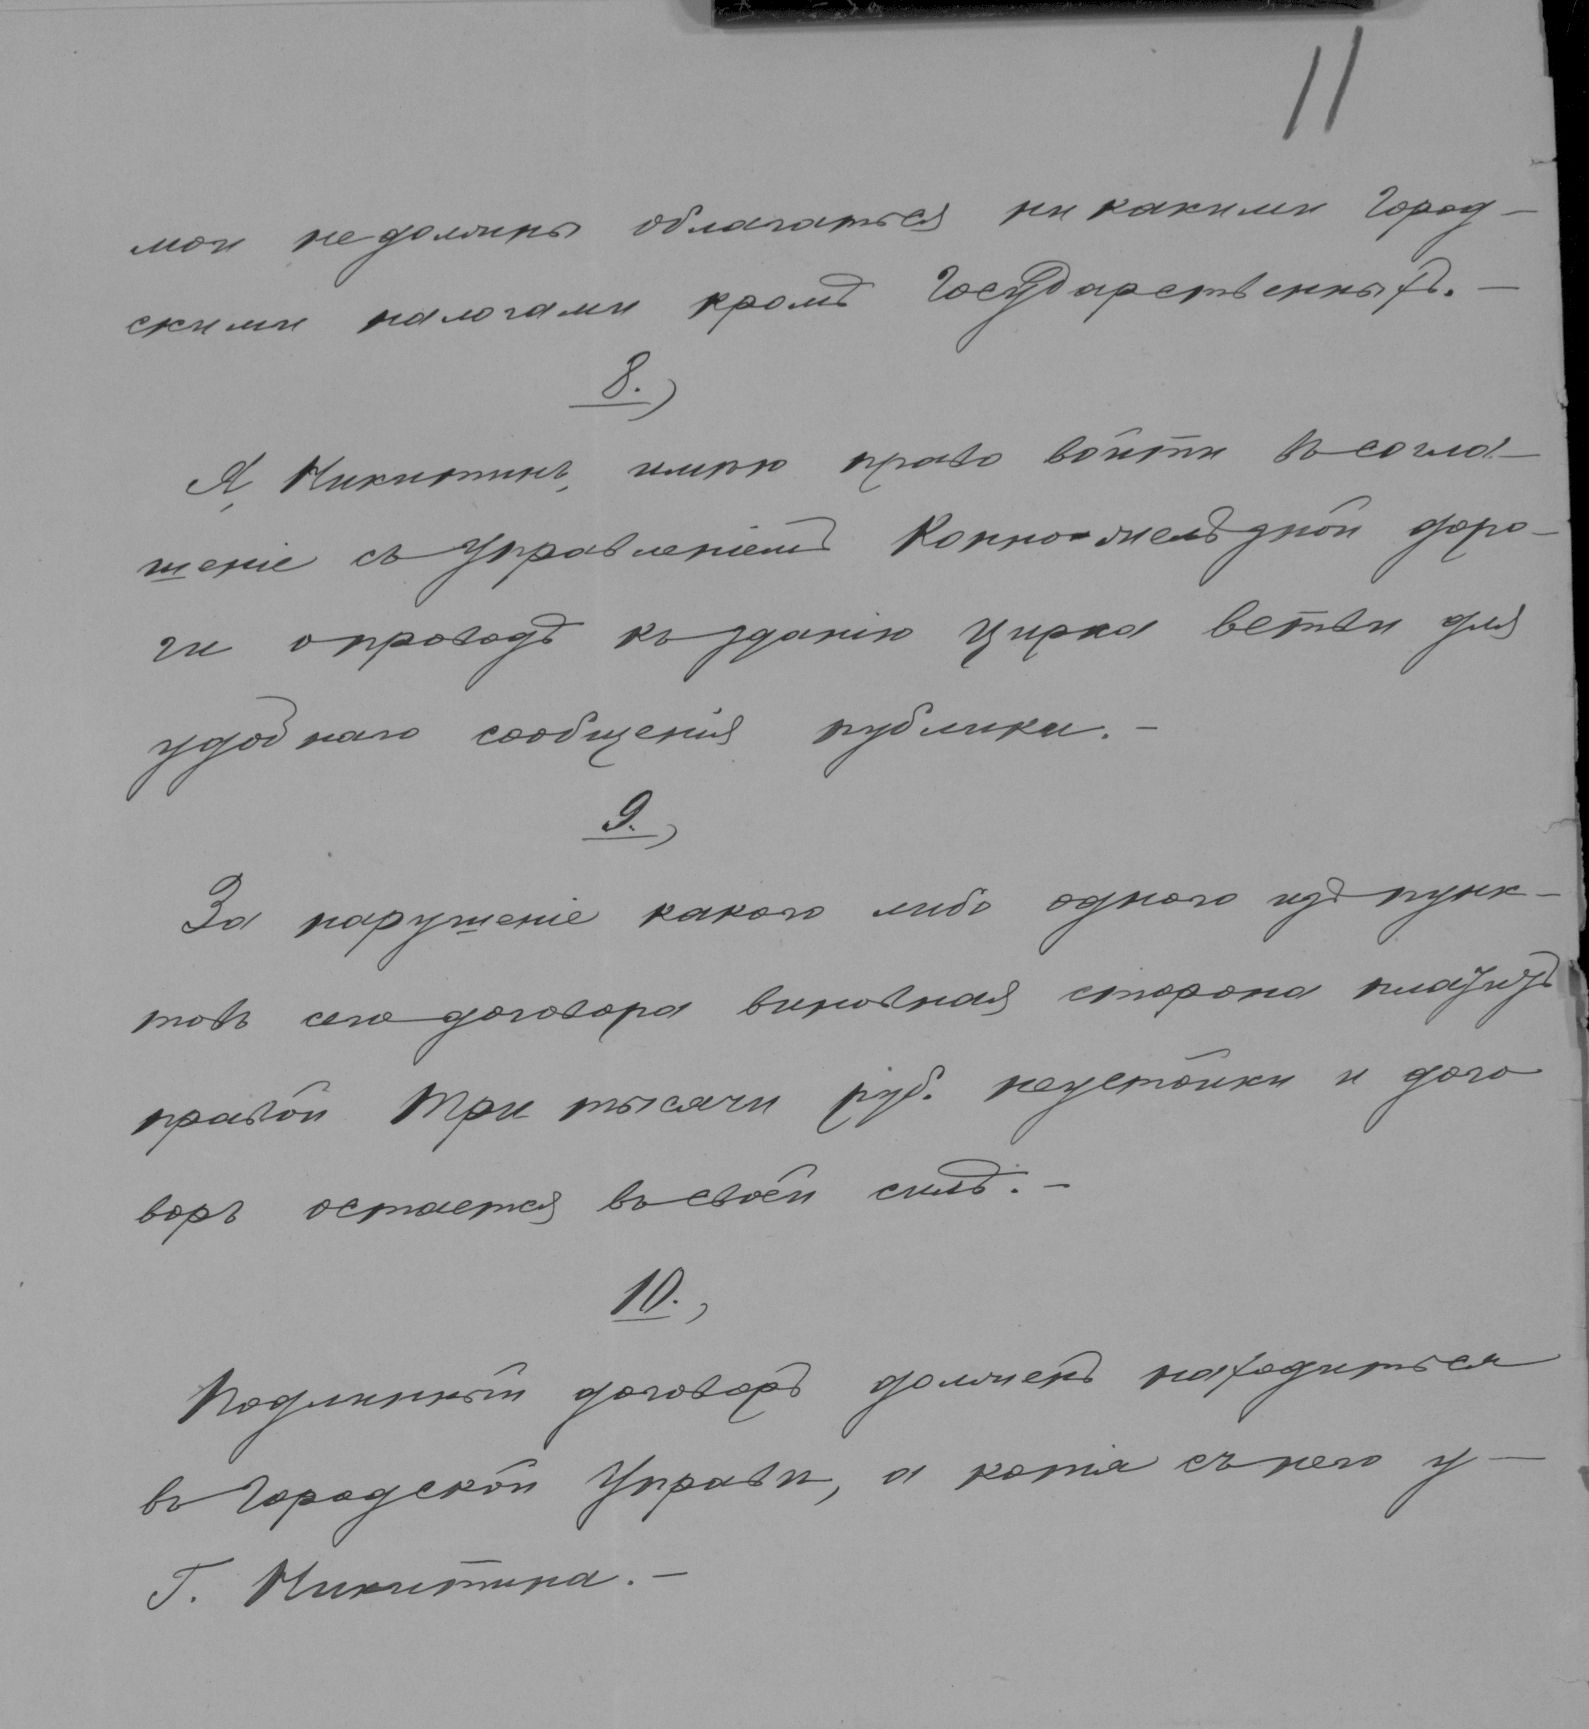 11
мои недолжны облагаться никакими Город-
скими налогами кромѣ Государственныхъ. -
8.)
Я, Никитинъ, имѣю право войти въ согла-
шеніе съ Управленіемъ Конно-желѣзной доро-
ги о проводѣ къ зданію Цирка ветви для
удобнаго сообщенія публики. -
9.)
За нарушеніе какого либо одного изъ пунк-
товъ сего договора виновная сторона платитъ
правой три тысячи руб. неустойки и дого
воръ остается въ своей силѣ. -
10.)
Подлинный договоръ долженъ находиться
въ Городской Управѣ, а копія съ него у -
Г. Никитина. -